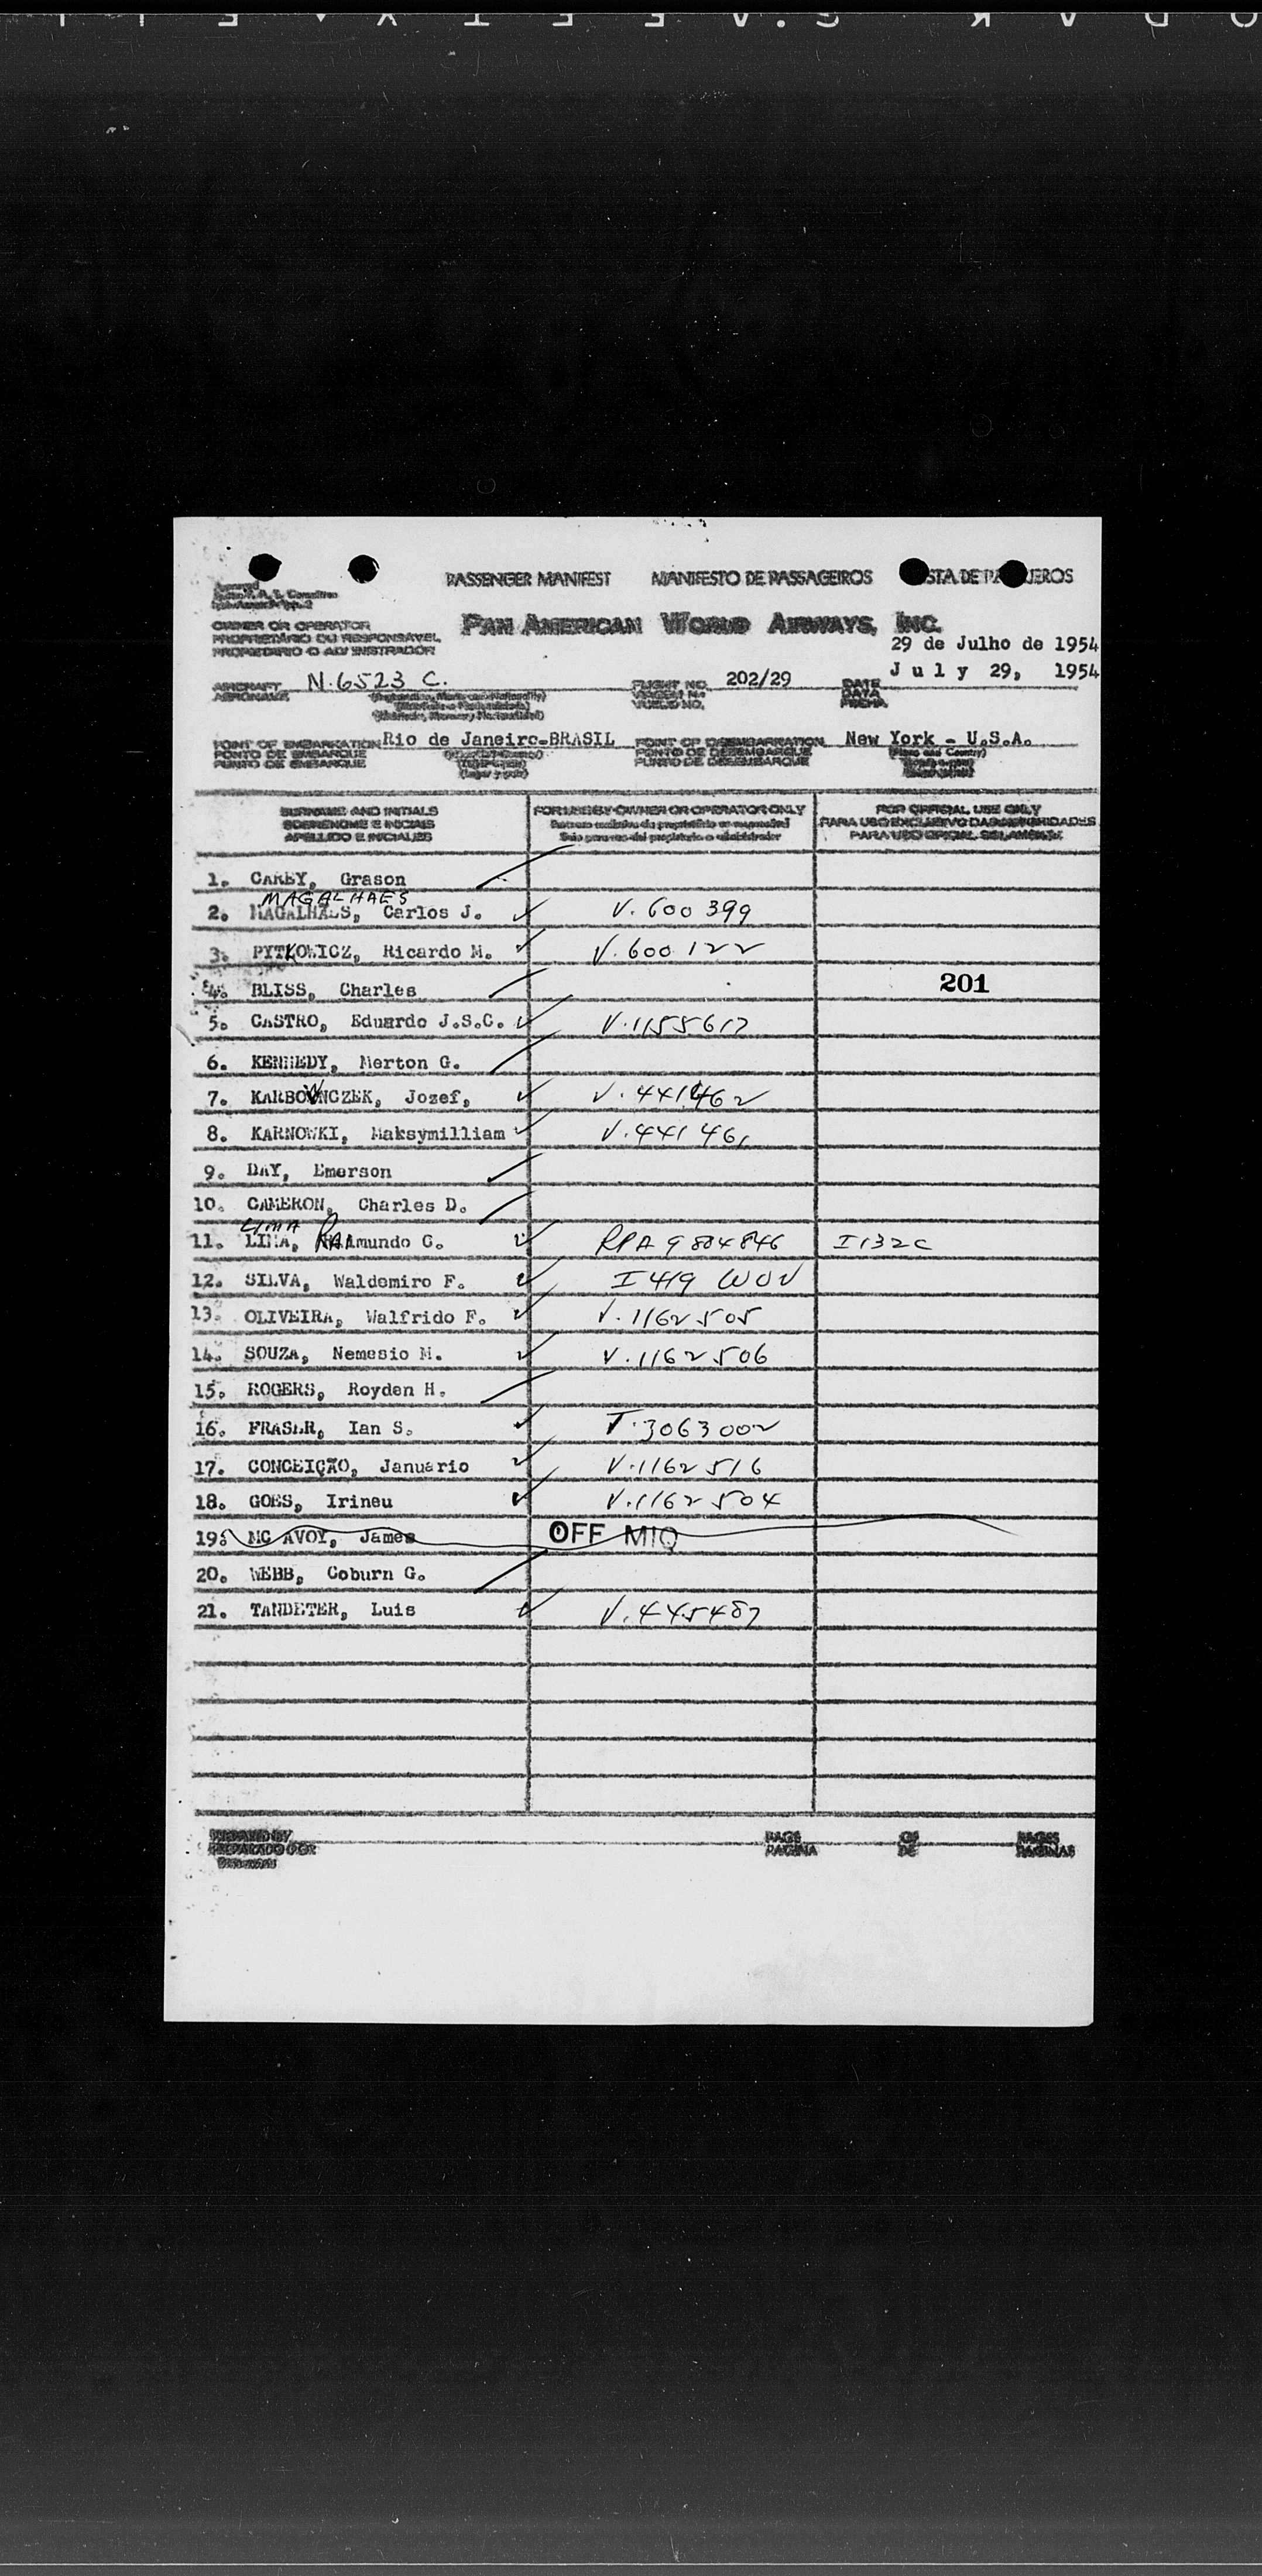 PASSENGER MANIFEST MANIFESTO DE PASSAGEIROS STA DE PA JEROS
OWNER OR OPERATOR
PROPRIETÁRIO OU RESPONSAVEL
PROPIETARIO O ADMINISTRADOR
PAN AMERICAN WORLD AIRWAYS, INC.
29 de Julho de 1954
July 29, 1954
AIRCRAFT N.6523 C. FLIGHT NO. 202/29 DATE
AERONAVE DATA
VUELO NO. FECHA
POINT OF EMBARKATION Rio de Janeiro-BRASIL POINT OF DISEMBARKATION New York - U.S.A.
PONTO DE EMBARQUE PONTO DE DESEMBARQUE (Place and Country)
PUNTO DE EMBARQUE PUNTO DE DESEMBARQUE
(Lugar y país)
SURNAME AND INITIALS FOR USE BY OWNER OR OPERATOR ONLY FOR OFFICIAL USE ONLY
SOBRENOME E INICIAIS PARA USO EXCLUSIVO DAS AUTORIDADES
APELLIDO E INICIALES PARA USO OFICIAL SOLAMENTE
1. CAREY, Grason
MAGALHAES
2. MAGALHAES, Carlos J. V. 600 399
3. PYTKOWICZ, Ricardo M. V. 600 122
4. BLISS, Charles 201
5. CASTRO, Eduardo J.S.C. V.1155617
6. KENNEDY, Merton G.
7. KARBOWNCZEK, Jozef, V.441462
8. KARNOWKI, Maksymilliam V.441 461
9. DAY, Emerson
10. CAMERON, Charles D.
LIMA
11. LIMA, RAimundo G. RPA 9 884846 I132C
12. SILVA, Waldemiro F. I 419 WOV
13. OLIVEIRA, Walfrido F. V.1162505
14. SOUZA, Nemesio M. V.1162506
15. ROGERS, Royden H.
16. FRASER, Ian S. T.3063002
17. CONCEIÇÃO, Januario V.1162516
18. GOES, Irineu V.1162504
19. MC AVOY, James OFF MIQ
20. WEBB, Coburn G.
21. TANDETER, Luis V.445487
PREPARED BY PAGE OF PAGES
PREPARADO POR PAGINA DE PAGINAS